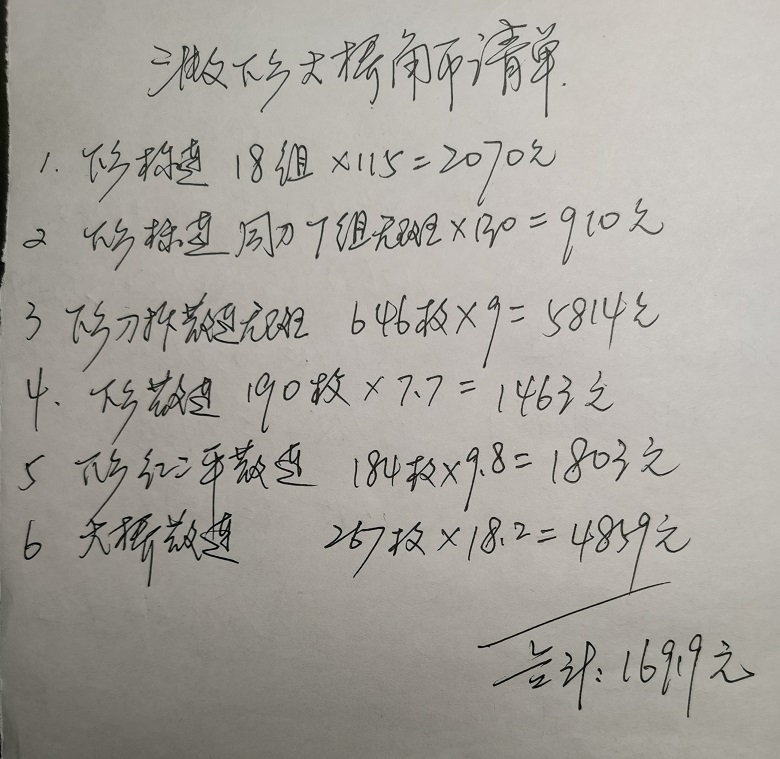 三版下乡大桥角币清单.
1. 下乡标连 18组×115=2070元
2 下乡标连同刀7组无斑×130=910元
3 下乡刀拆散连无斑 646枚×9=5814元
4. 下乡散连 190枚×7.7=1463元
5 下乡红二平散连 184枚×9.8=1803元
6 大桥散连 267枚×18.2=4859元
合计: 16919元